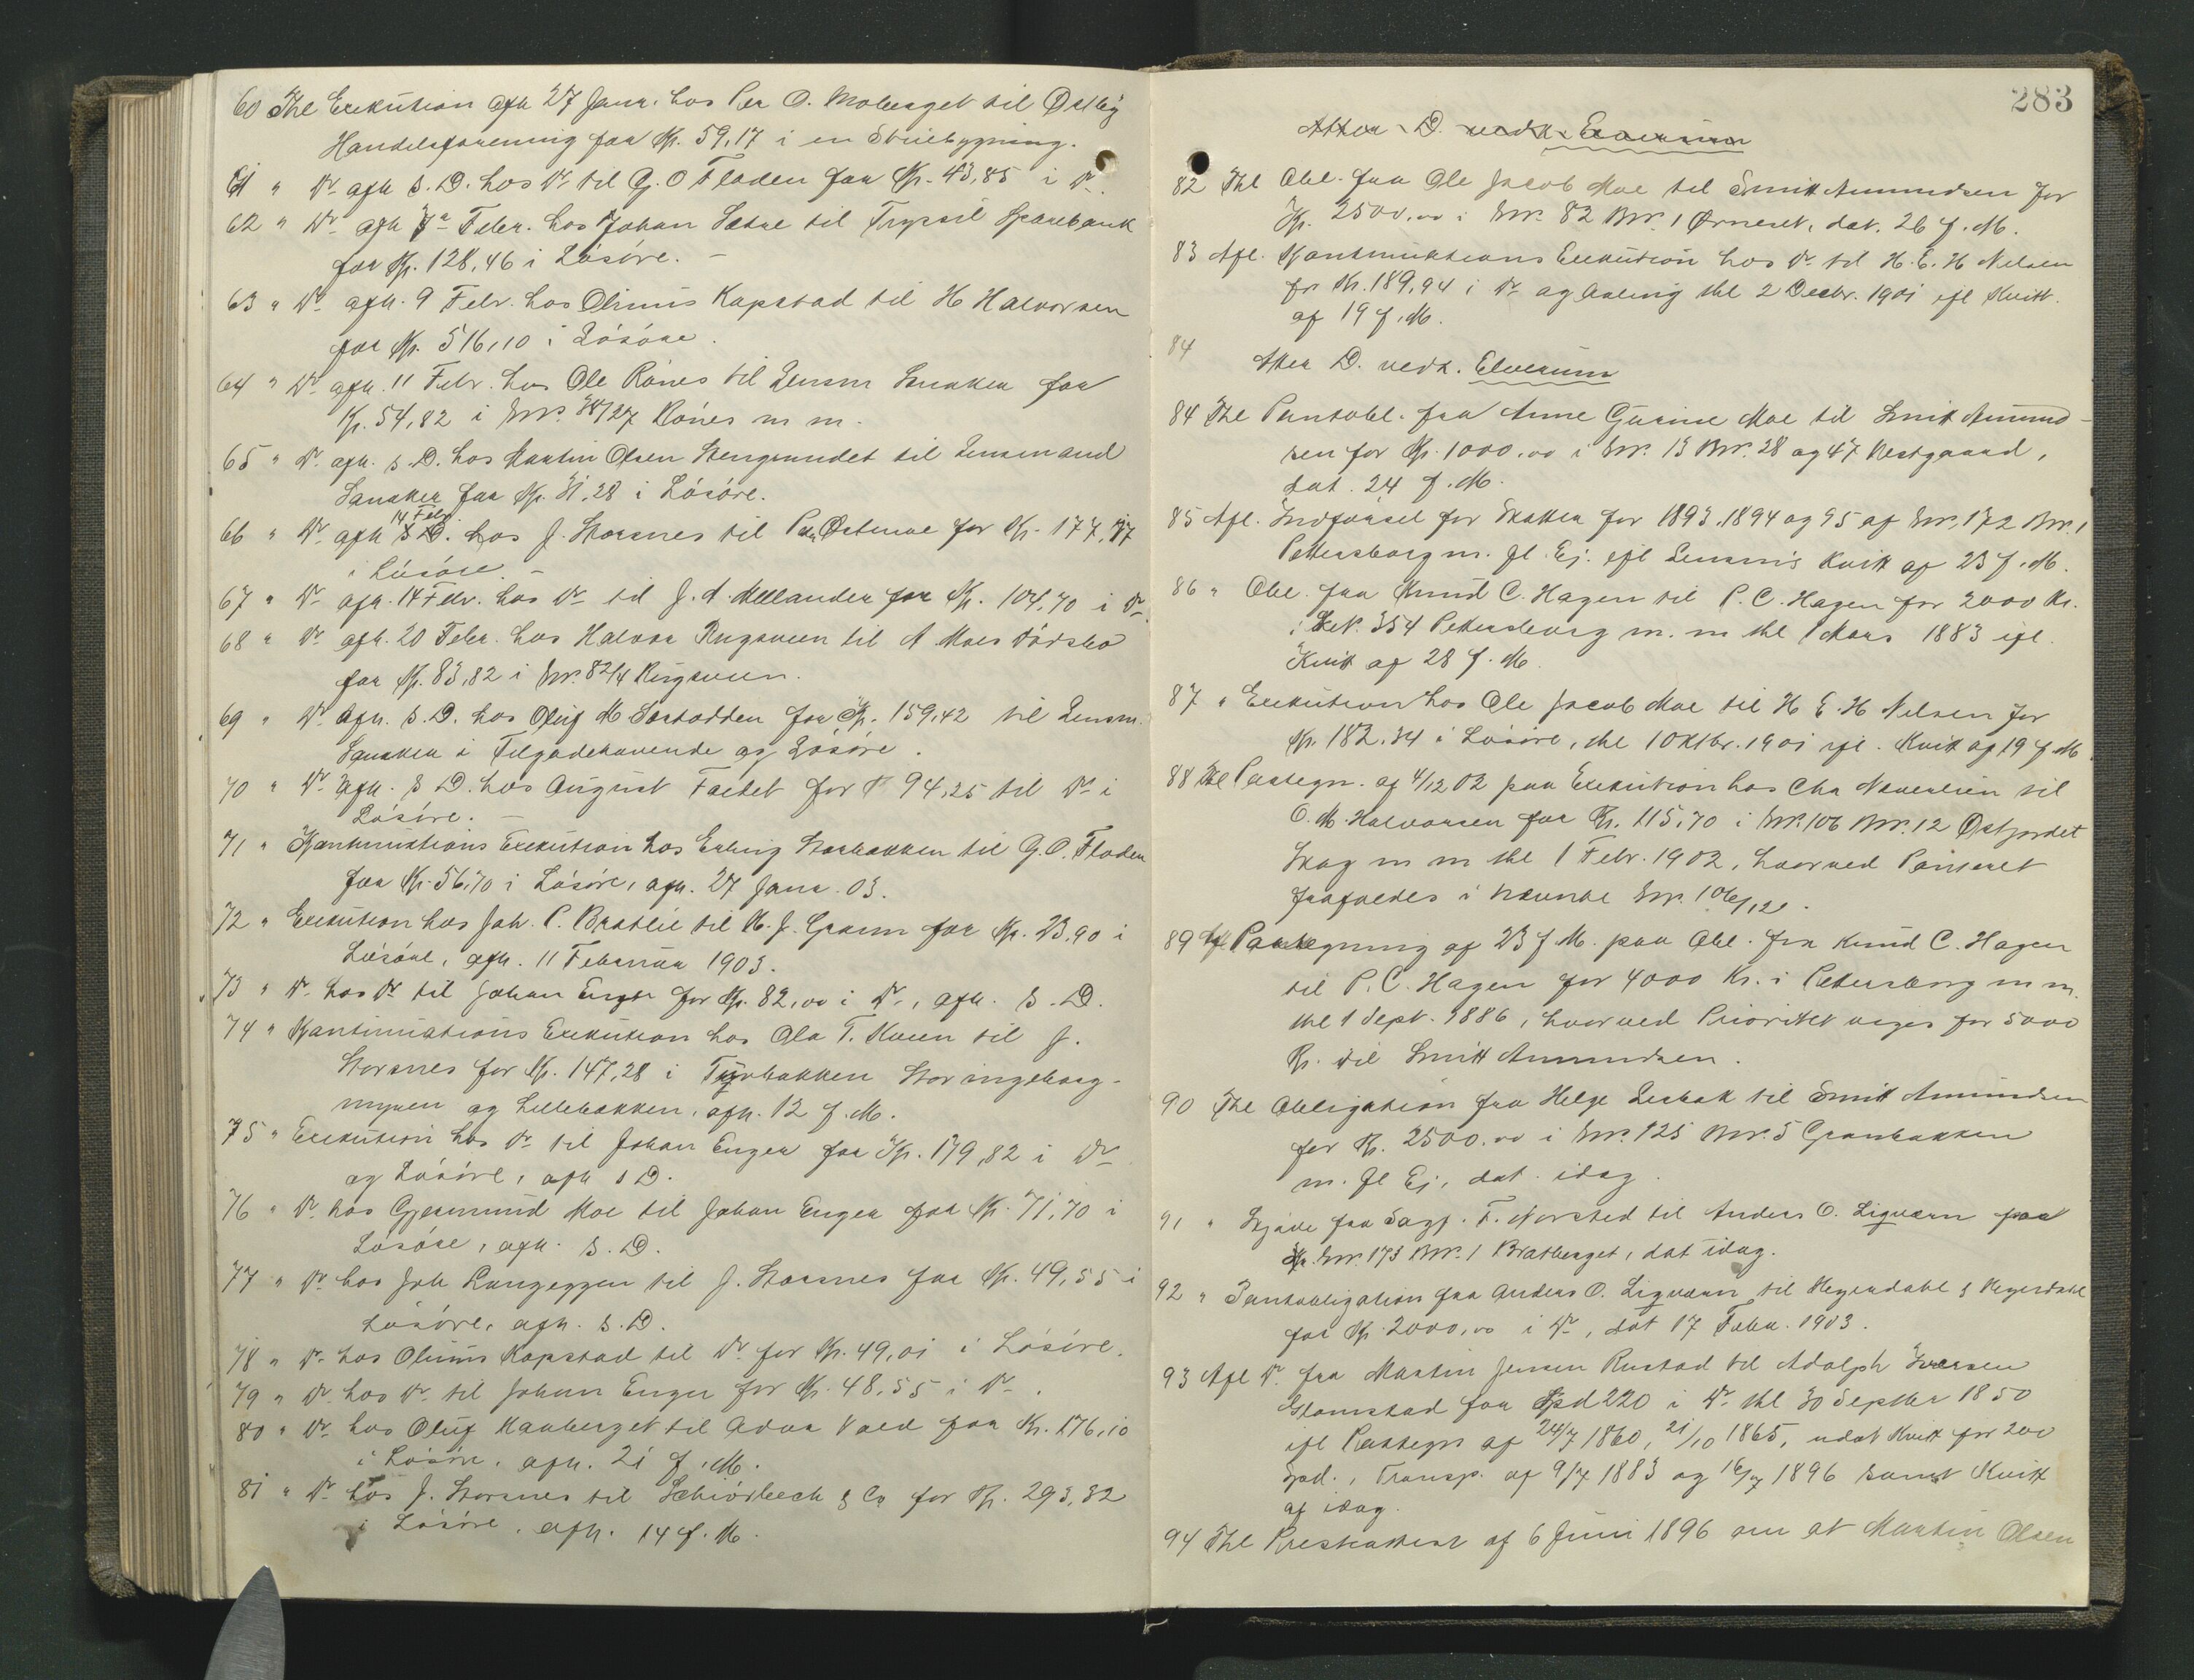 60 Thl Exekution afh 27 Janr. hos Per O. Moberget til Østby
Handelsforening for Kr. 59,17 i en Stuebygning.
61 " Do afh s. D. hos Do til G. O Floden for Kr. 43,85 i Do.
62 " Do afh 7de Febr. hos Johan Sætre til Trysil Sparebank
for Kr. 128,46 i Løsøre. –
63 " Do afh. 9 Febr. hos Olinus Kapstad til H Halvorsen
for Kr. 516,10 i Løsøre.
64 " Do afh. 11 Febr. hos Ole Rönes til Lensm Sunker for
Kr. 54,82 i Gnr 38/27 Rönes m m.
65 " Do afh. s. D. hos Martin Olsen Stengrundet til Lensmand
for Kr. 28 i Løsøre.
66 " Do afh 14 Febr s. D. hos J. Storsnes til Per Østmoe for Kr. 177,97
i Løsøre. –
67 " Do afh. 14 Febr. hos Do til J. A. Mellander for Kr. 104,70 i Do
68 " Do afh. 20 Febr. hos Halvor Rugsveen til A Moes Dödsbo
for Kr. 83,82 i Gnr. 82/4 Rugsveen.
69 " Do afh. s. D. hos Oluf M Sorhodden for Kr. 159,42 til Lensm.
i Tilgodehavende og Løsøre.
70 " Do afh. s D. hos August Faldet for K 94,25 til Do i
Løsøre. –
71 " Kontinuktions Exekution hos Erling Storbakken til G. O. Floden
for Kr. 56,70 i Løsøre, afh. 27 Janr. 03.
72 " Exekution hos Joh. P. Bratlie til K. J. Gramm for Kr. 23,90 i
Løsøre, afh. 11 Februar 1903.
73 " Do hos Do til Johan Enger for Kr. 82,00 i Do, afh. s. D.
74 " Kontinuations Exekution hos Ola T. Kveen til J.
Storsnes for Kr. 147,28 i Tyrbakken Storingeborg-
myren og Lillebakken, afh. 12 f. M.
75 " Exekution hos Do til Johan Enger for Kr. 179,82 i Do
og Løsøre, afh s D.
76 " Do hos Gjermund Moe til Johan Enger for Kr. 71,70 i
Løsøre, afh. s. D.
77 " Do hos Joh Langeggen til J. Storsnes for Kr. 49,55 i
Løsøre, afh. s. D.
78 " Do hos Olinus Kapstad til Do for Kr. 49,01 i Løsøre.
79 " Do hos Do til Johan Enger for Kr. 48,55 i Do.
80 " Do hos Oluf til Advar Vold for Kr. 176,10
i Løsøre, afh. 21 f. M.
81 " Do hos J. Storsnes til Schiørbech & Co for Kr. 293,32
i Løsøre, afh. 14 f. M.
283
Atter D. vedk. Elverum
82 Thl Obl. fra Ole Jacob Moe til Smitt Amundsen for
Kr. 2500,00 i Gnr. 82 Bnr. 1 Ørneset, dat. 26 f. M.
83 Afl. Kontinuktions Exekution hos Do til H. E. H Nelsen
for Kr. 189,94 i Do og thl 2 Decbr. 1901 ifl Kvitt.
af 19 f. M.
84
Atter D. vedr. Elverum
84 Thl Pantobl. fra Anne Gurine Moe til Smitt Amund-
sen for Kr. 1000,00 i Gnr. 13 Bnr. 28 og 47 Vestgaard,
dat. 24 f. M.
85 Afl. Indførsel for Skatter for 1893. 1894 og 95 af Gnr. 172 Bnr. 1
Pettersborg m. fl. Ej. ifl Lensm's Kvitt af 23 f. M.
86 " Obl. fra Knud C. Hagen til P. C. Hagen for 2000 Kr.
i LN. 354 Pettersborg m. m thl 1 Mars 1883 ifl.
Kvitt af 28 f. M.
87 " Exekution hos Ole Jacob Moe til H E. H Nelsen for
Kr. 182,34 i Løsøre, thl 1 Oktbr. 1901 ifl. Kvitt af 19 f. M.
88 Thl Paategn. af 4/12 02 paa Exekution hos Chr Naverlien til
O. M. Halvorsen for Kr. 115,70 i Gnr. 106 Bnr. 12 Østjordet
Skog m m thl 1 Febr. 1902, hvorved Panteret
frafaldes i nævnte Gnr. 106/12.
89 Afl Paategning af 23 f. M. paa Obl. fra Knud C. Hagen
til P. C. Hagen for 4000 Kr. i Petersborg m m.
thl 1 Sept. 1886, hvorved Prioritet viges for 5000
Kr. til Smitt Amundsen.
90 Thl Obligation fra Helge Lesbak til Smitt Amundsen
for Kr. 2500,00 i Gnr. 125 Bnr. 5 Granbakken
m. fl Ej, dat. idag.
91 " Skjøde fra Sagf. F. Norsted til Anders O. Ligvarn paa
Gnr. 173 Bnr. 1 Bratberget, dat idag.
92 " Pantobligation fra Anders O. Ligvarn til Heyerdahl & Heyerdahl
for Kr. 2000,00 i Do, dat 17 Febr. 1903.
93 Afl Do fra Martin Jensen Rustad til Adolph Iversen
Glomstad for Spd 220 i Do thl 30 Septbr 1850
ifl Paategn af 24/7 1860, 21/10 1865, udat Kvitt for 200
Spd., Transp. af 9/7 1883 og 16/7 1896 samt Kvitt
af idag.
94 Thl Presteattest af 6 Juni 1896 om at Martin Olsen